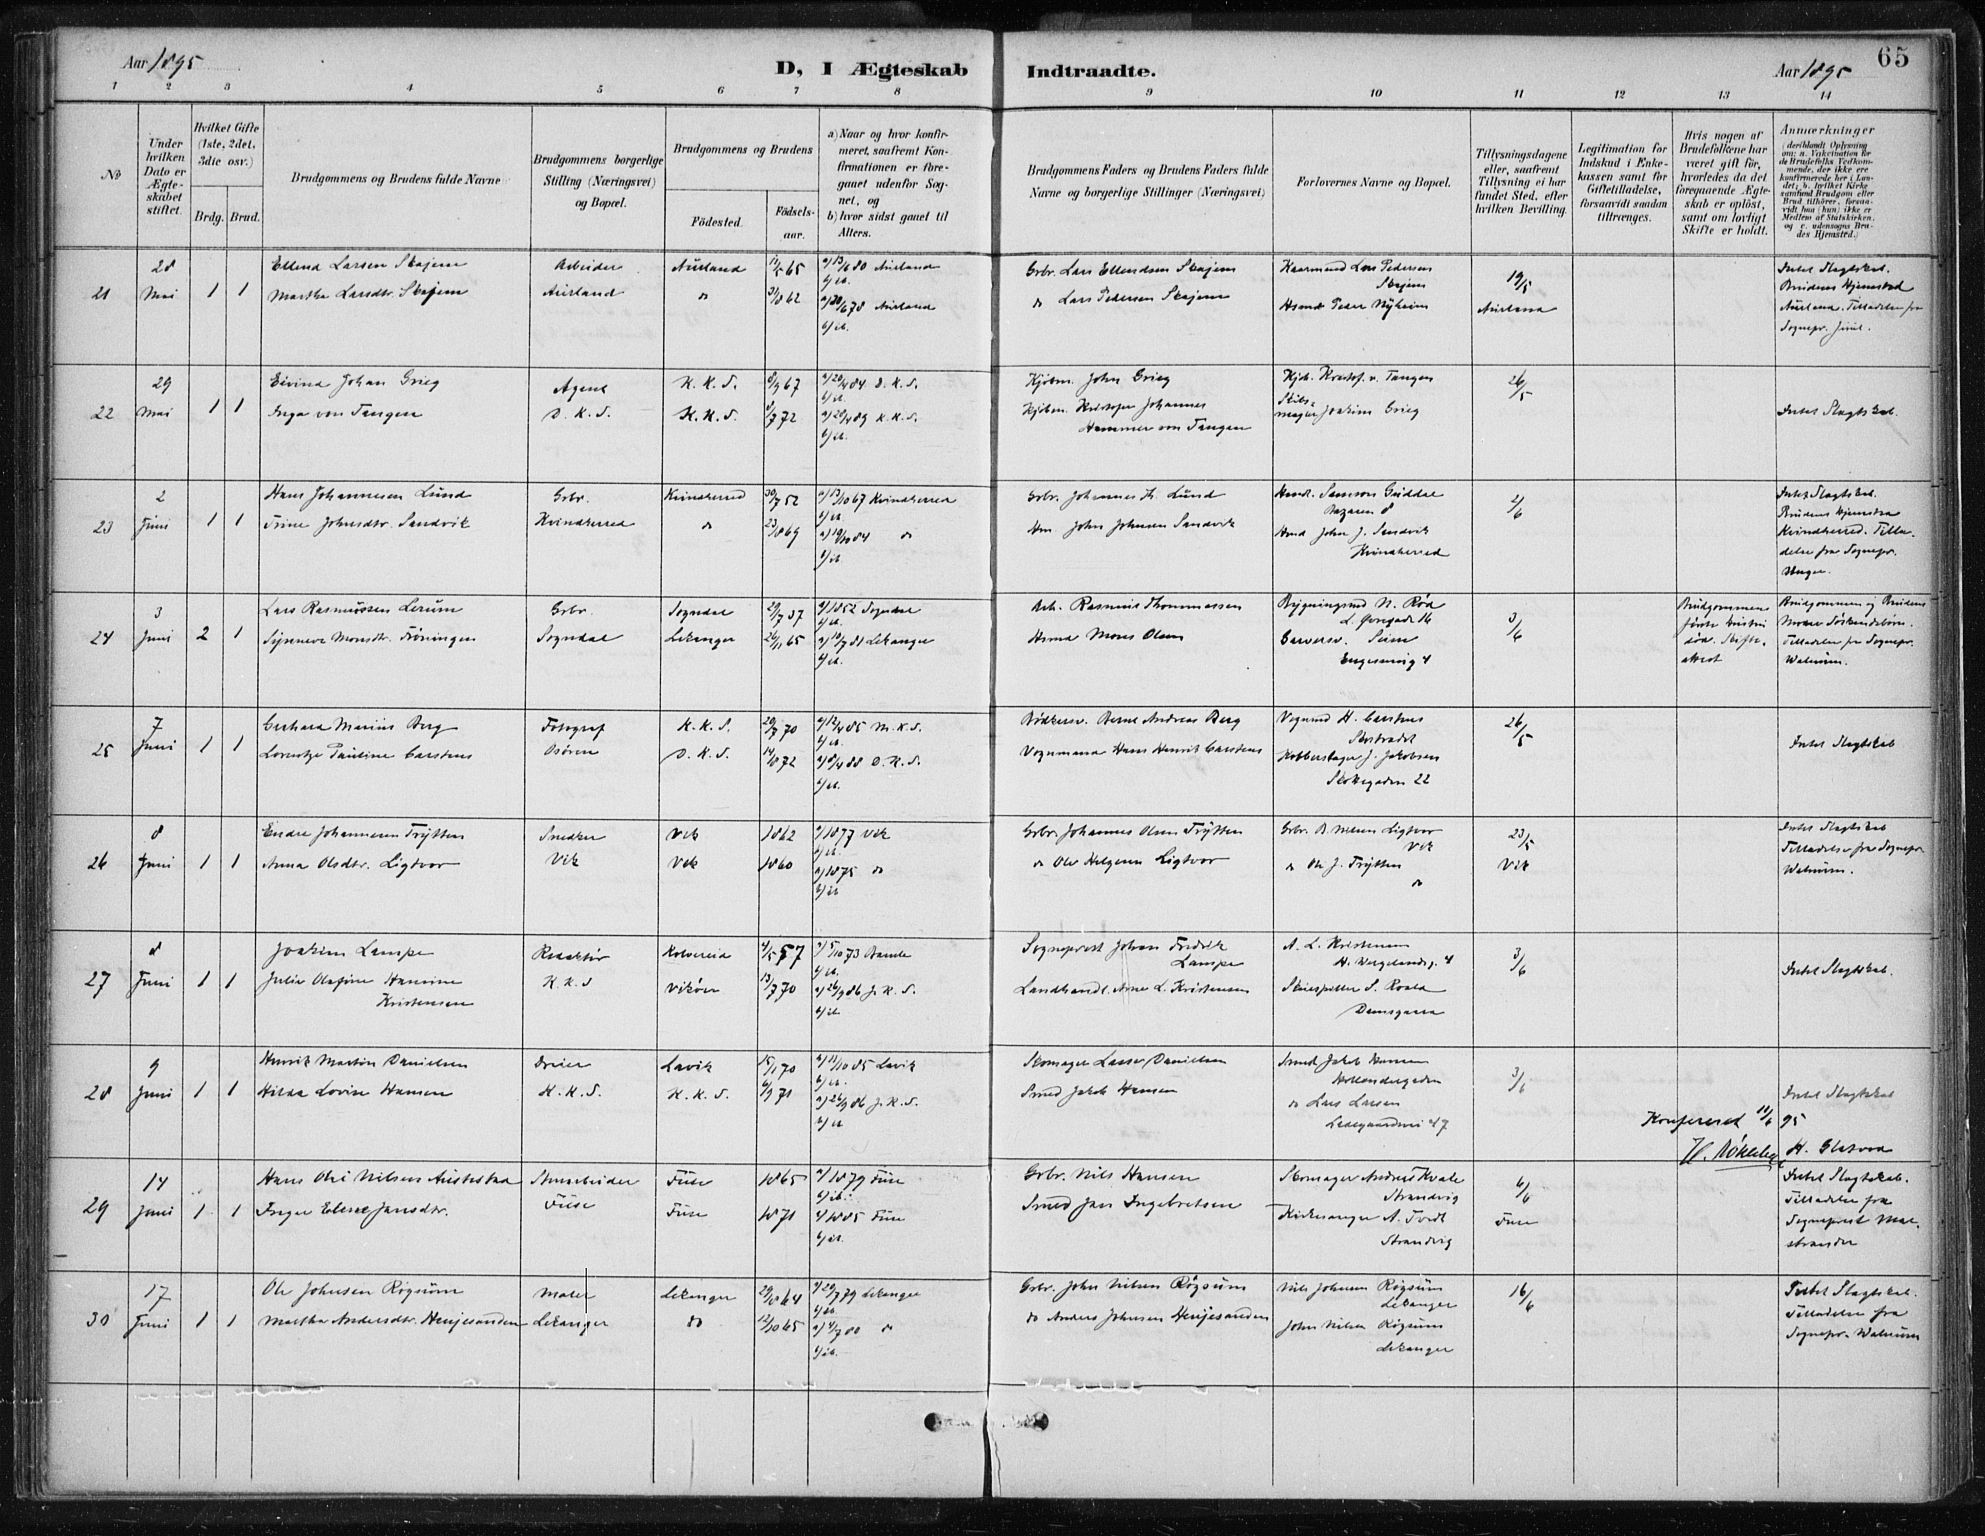 Aar 1895
D, I Ægteskab
Indtraadte.
Aar 1895
65
1 2 3 4 5 6 7 8 9 10 11 12 13 14
No
Under hvilken Dato er Ægteskabet stiftet.
Hvilket Gifte (1ste, 2det, 3die osv.)
Brdg. Brud.
Brudgommens og Brudens fulde Navne
Brudgommens borgerlige Stilling (Næringsvei) og Bopæl.
Brudgommens og Brudens
Fødested.
Fødselsaar.
a) Naar og hvor konfirmeret, saafremt Konfirmationen er foregaaet udenfor Sognet, og
b) hvor sidst gaaet til Alters.
Brudgommens Faders og Brudens Faders fulde Navne og borgerlige Stillinger (Næringsvei)
Forlovernes Navne og Bopæl.
Tillysningsdagene eller, saafremt Tillysning ei har fundet Sted, efter hvilken Bevilling.
Legitimation for Indskud i Enkekassen samt for Giftetilladelse, forsaavidt saadan tiltrænges.
Hvis nogen af Brudefolkene har været gift før, hvorledes da det foregaaende Ægteskab er opløst, samt om lovligt Skifte er holdt.
Anmærkninger (deriblandt Oplysning om: a. Vakcination for de Brudefolks Vedkommende, der ikke ere konfirmerede her i Landet; b. hvilket Kirkesamfund Brudgom eller Brud tilhører, forsaavidt han (hun) ikke er Medlem af Statskirken, og c. udensogns Brudes Hjemsted.)
21
28 Mai
1 1
Ellend Larsen Skajem
Martha Larsdtr. Skajem
Arbeider
Aurland
Aurland
do
11/5 65
31/8 62
a) 13/6 80 Aurland
b) ib.
a) 30/6 78 Aurland
b) ib.
Grbr. Lars Ellendsen Skajem
do Lars Pedersen Skajem
Kaarmand Lars Pedersen Skajem
Husmd Peder Nyheim
19/5
Aurland
Intet Slagtskab.
Brudens Hjemsted
Aurland. Tilladelse fra
Sognepr. Juul.
22
29 Mai
1 1
Eivind Johan Grieg
Inga von Tangen
Agent
D. K. S.
K. K. S.
K. K. S.
8/9 67
8/7 72
a) 20/4 84 D. K. S.
b) ib.
a) 20/4 89 K. K. S.
b) ib.
Kjøbm. John Grieg
Kjøbm. Kristofer Johannes
Hammer von Tangen
Kjøb. Kristof. v. Tangen
Skibsmægler Joakim Grieg
26/5
Intet Slagtskab.
23
2 Juni
1 1
Hans Johannesen Lund
Trine Johnsdtr. Sandvik
Grbr.
Kvindherred
Kvindherred
do
30/7 52
23/8 69
a) 13/10 67 Kvindherred
b) ib.
a) 19/10 84 do
b) ib.
Grbr. Johannes H. Lund
Hm. John Johnsen Sandvik
Handl. Samson Guddal
Bazaren 8
Hmd John J. Sandvik
Kvindherred
2/6
Intet Slagtskab.
Brudens Hjemsted
Kvindherred. Tilladelse fra Sognepr.
24
3 Juni
2 1
Lars Rasmussen Lerum
Synneva Monsdtr. Frøningen
Grbr.
Sogndal
Sogndal
Lekanger
29/7 37
26/11 65
a) 1852 Sogndal
b) ib.
a) 10/7 81 Lekanger
b) ib.
Arb. Rasmus Thommassen
Husmd Mons Olsen
Bygningssnd N. Rød
16
Garversv. Seim
Engesvig 4
3/6
Brudgommens
første hustru
død. Skifteattest
Brudgommens og Brudens
Mødre Søskendebørn.
Tilladelse fra Sognepr.
Walnum.
25
7 Juni
1 1
Gerhard Marius Berg
Lorentze Pauline Carstens
Fotograf
Osøren
K. K. S.
D. K. S.
20/7 70
14/8 72
a) 12/4 85 M. K. S.
b) ib.
a) 8/4 88 D. K. S.
b) ib.
Bødkersv. Bernt Andreas Berg
Vognmand Hans Henrik Carstens
Vognmd H. Carstens
Kobberslager J. Jakobsen
Skottegaden 22
26/5
Intet Slagtskab
26
8 Juni
1 1
Endre Johannesen Trytten
Anna Olsdtr. Ligtvor
Snedker
Vik
Vik
Vik
1862
1860
a) 1877 Vik
b) ib.
a) 1875 do
b) ib
Grbr. Johannes Olsen Trytten
do Ole Helgesen Ligtvor
Grbr. B. Nilsen Ligtvor
Vik
do Ole J. Trytten
do
23/5
Vik
Intet Slagtskab
Tilladelse fra Sognepr.
Walnum.
27
8 Juni
1 1
Joakim Lampe
Julie Olafine Hansine
Kristensen
Redaktør
K. K. S
Kolvereid
Vikøer
4/5 57
13/7 70
a) 5/10 73 Bamle
b) ib.
a) 26/9 86 J. K. S.
b) ib.
Sogneprest Johan Fredrik
Lampe
Landhandl. Arne L. Kristensen
A. L. Kristensen
H. Wergelandsg. 4
Skuespiller S. Roald
Damsgaard
3/6
Intet Slagtskab.
28
9 Juni
1 1
Henrik Martin Danielsen
Hilda Lovise Hansen
Dreier
K. K. S.
Lavik
K. K. S.
15/1 70
6/9 71
a) 11/10 85 Lavik
b) ib.
a) 26/9 86 J. K. S.
b) ib
Skomager Lasse Danielsen
Smed Jakob Hansen
Smed Jakob Hansen
Hollendergaden
do Lars Larsen
Ladegaardsvei 47
3/6
Intet Slagtskab
Konfereret 11/6 95
H. Røkeberg
29
14 Juni
1 1
Hans Olai Nilsen Austestad
Inger Elene Jansdtr.
Stenarbeider
Fuse
Fuse
Fuse
1865
1871
a) 1879 Fuse
b) ib.
a) 1885 Fuse
b) ib.
Grbr. Nils Hansen
Smed Jan Ingebretsen
Skomager Andreas Kvale
Strandvig
Kirkesanger A. Tvedt
Strandvig
6/6
Fuse
Intet Slagtskab.
Tilladelse fra
Sogneprest
30
17 Juni
1 1
Ole Johnsen Røysum
Martha Andersdtr. Henjesanden
Maler
Lekanger
Lekanger
do
29/8 64
12/10 65
a) 20/7 79 Lekanger
b) ib.
a) 4/7 80 do
b) ib.
Grbr. John Nilsen Røysum
do Anders Johnsen Henjesanden
Nils Johnsen Røysum
Lekanger
John Nilsen Røysum
Lekanger
16/6
Intet Slagtskab.
Tilladelse fra
Sognepr. Walnum